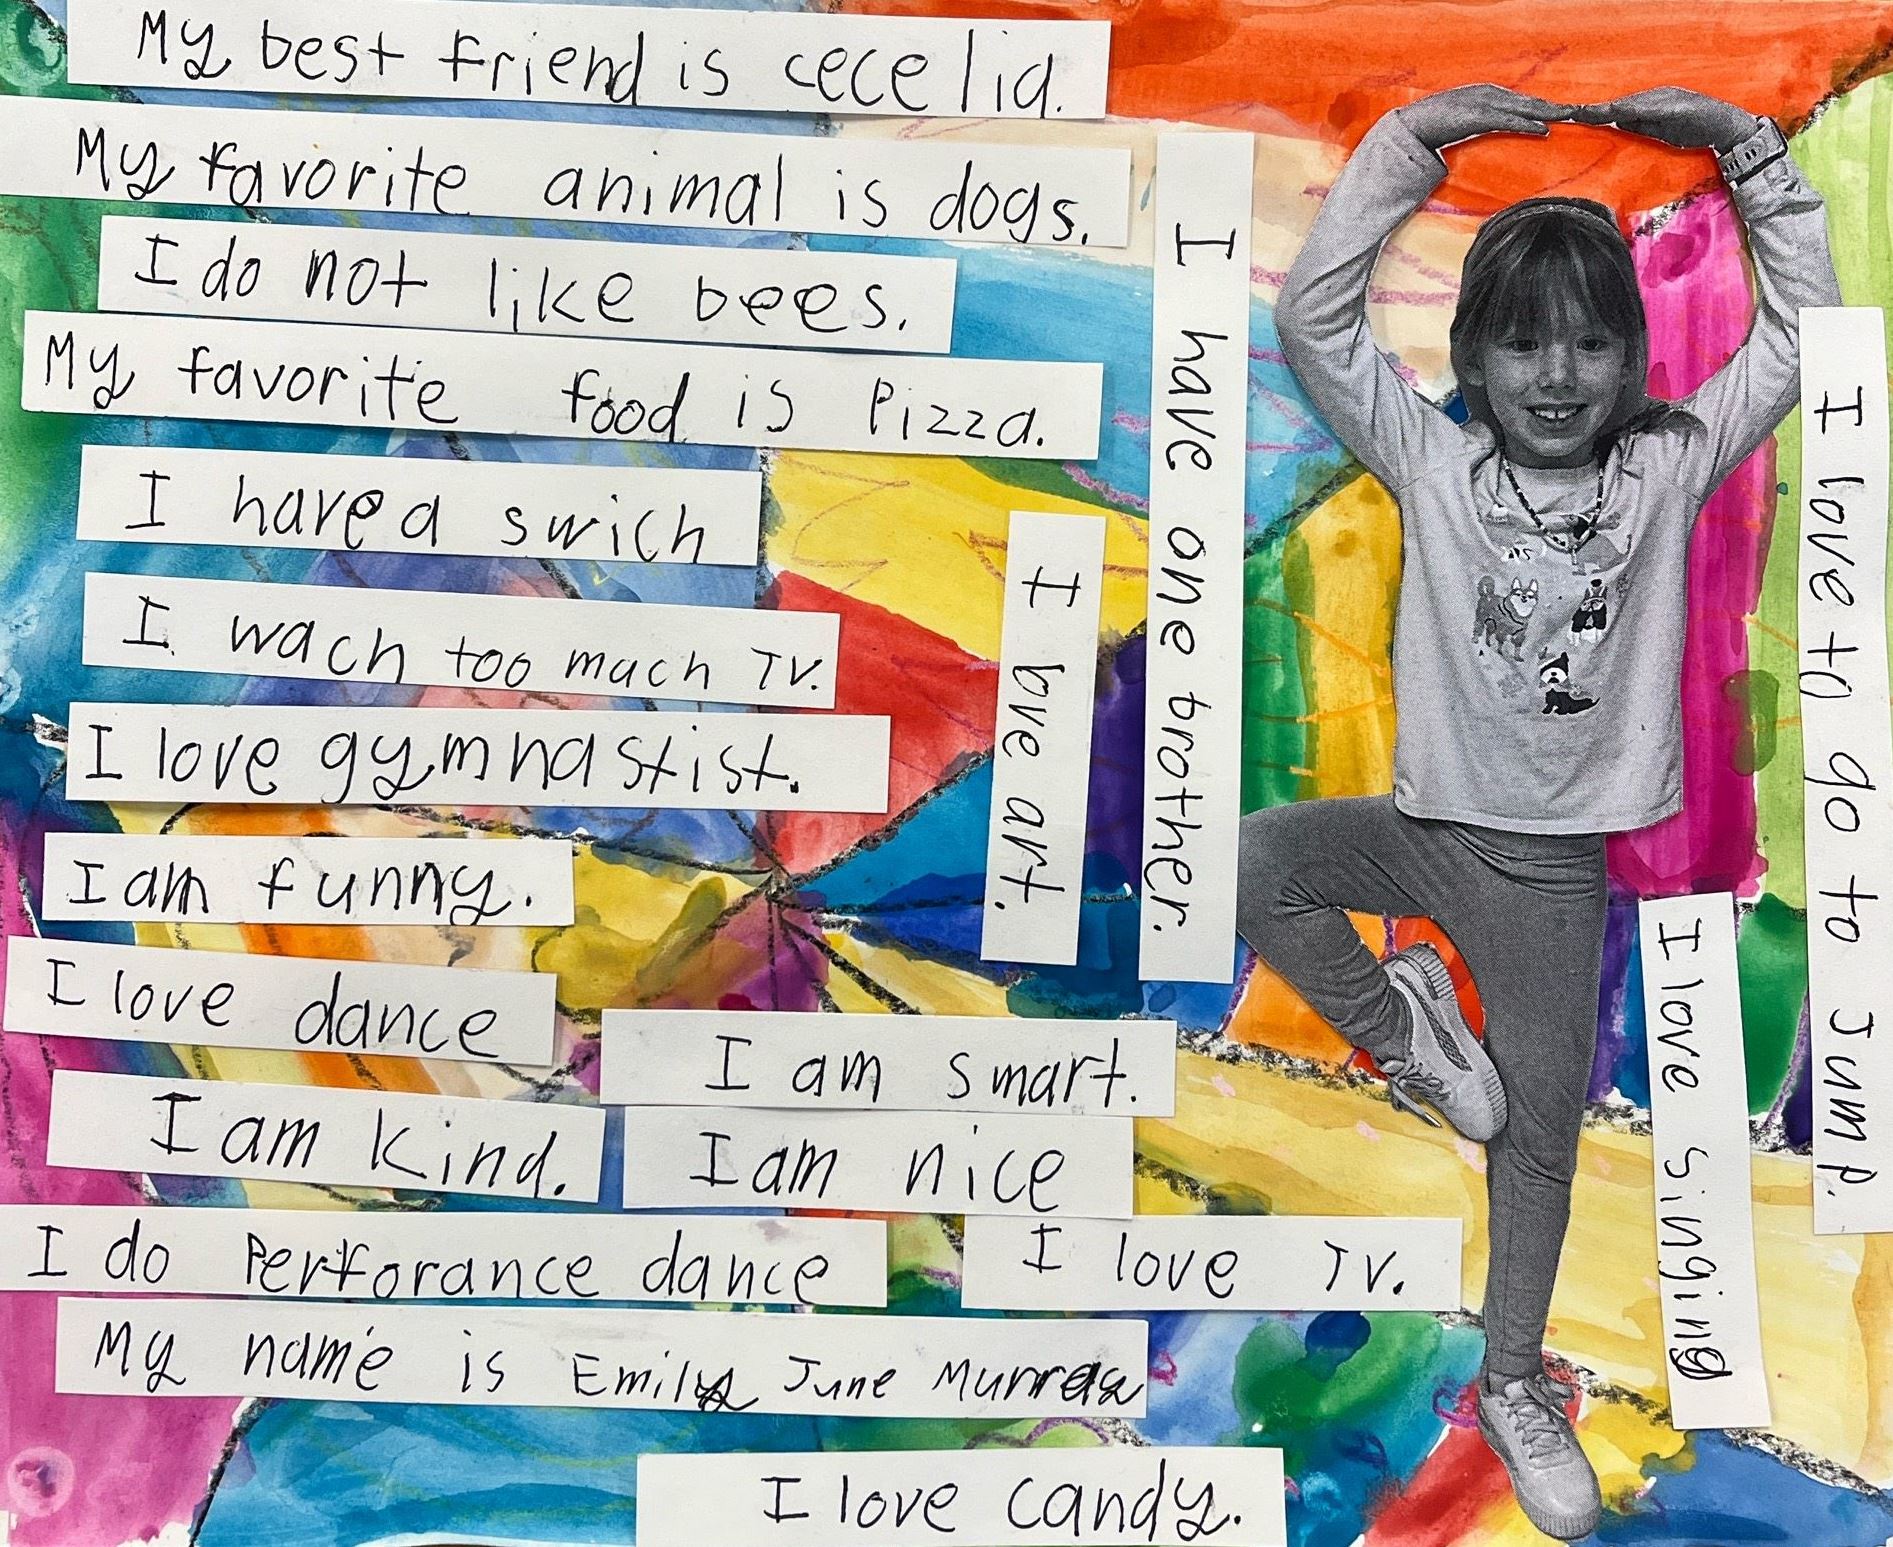 My best friend is cecelia.
My favorite animal is dogs.
I do not like bees.
My favorite food is Pizza.
I have a swich
I wach too mach TV.
I love gymnastist.
I am funny.
I love dance
I am smart.
I am kind.
I am nice
I do Perforance dance
I love TV.
My name is Emily June
I love candy.
I love art.
I have one brother.
I love singing
I love to go to Jump.